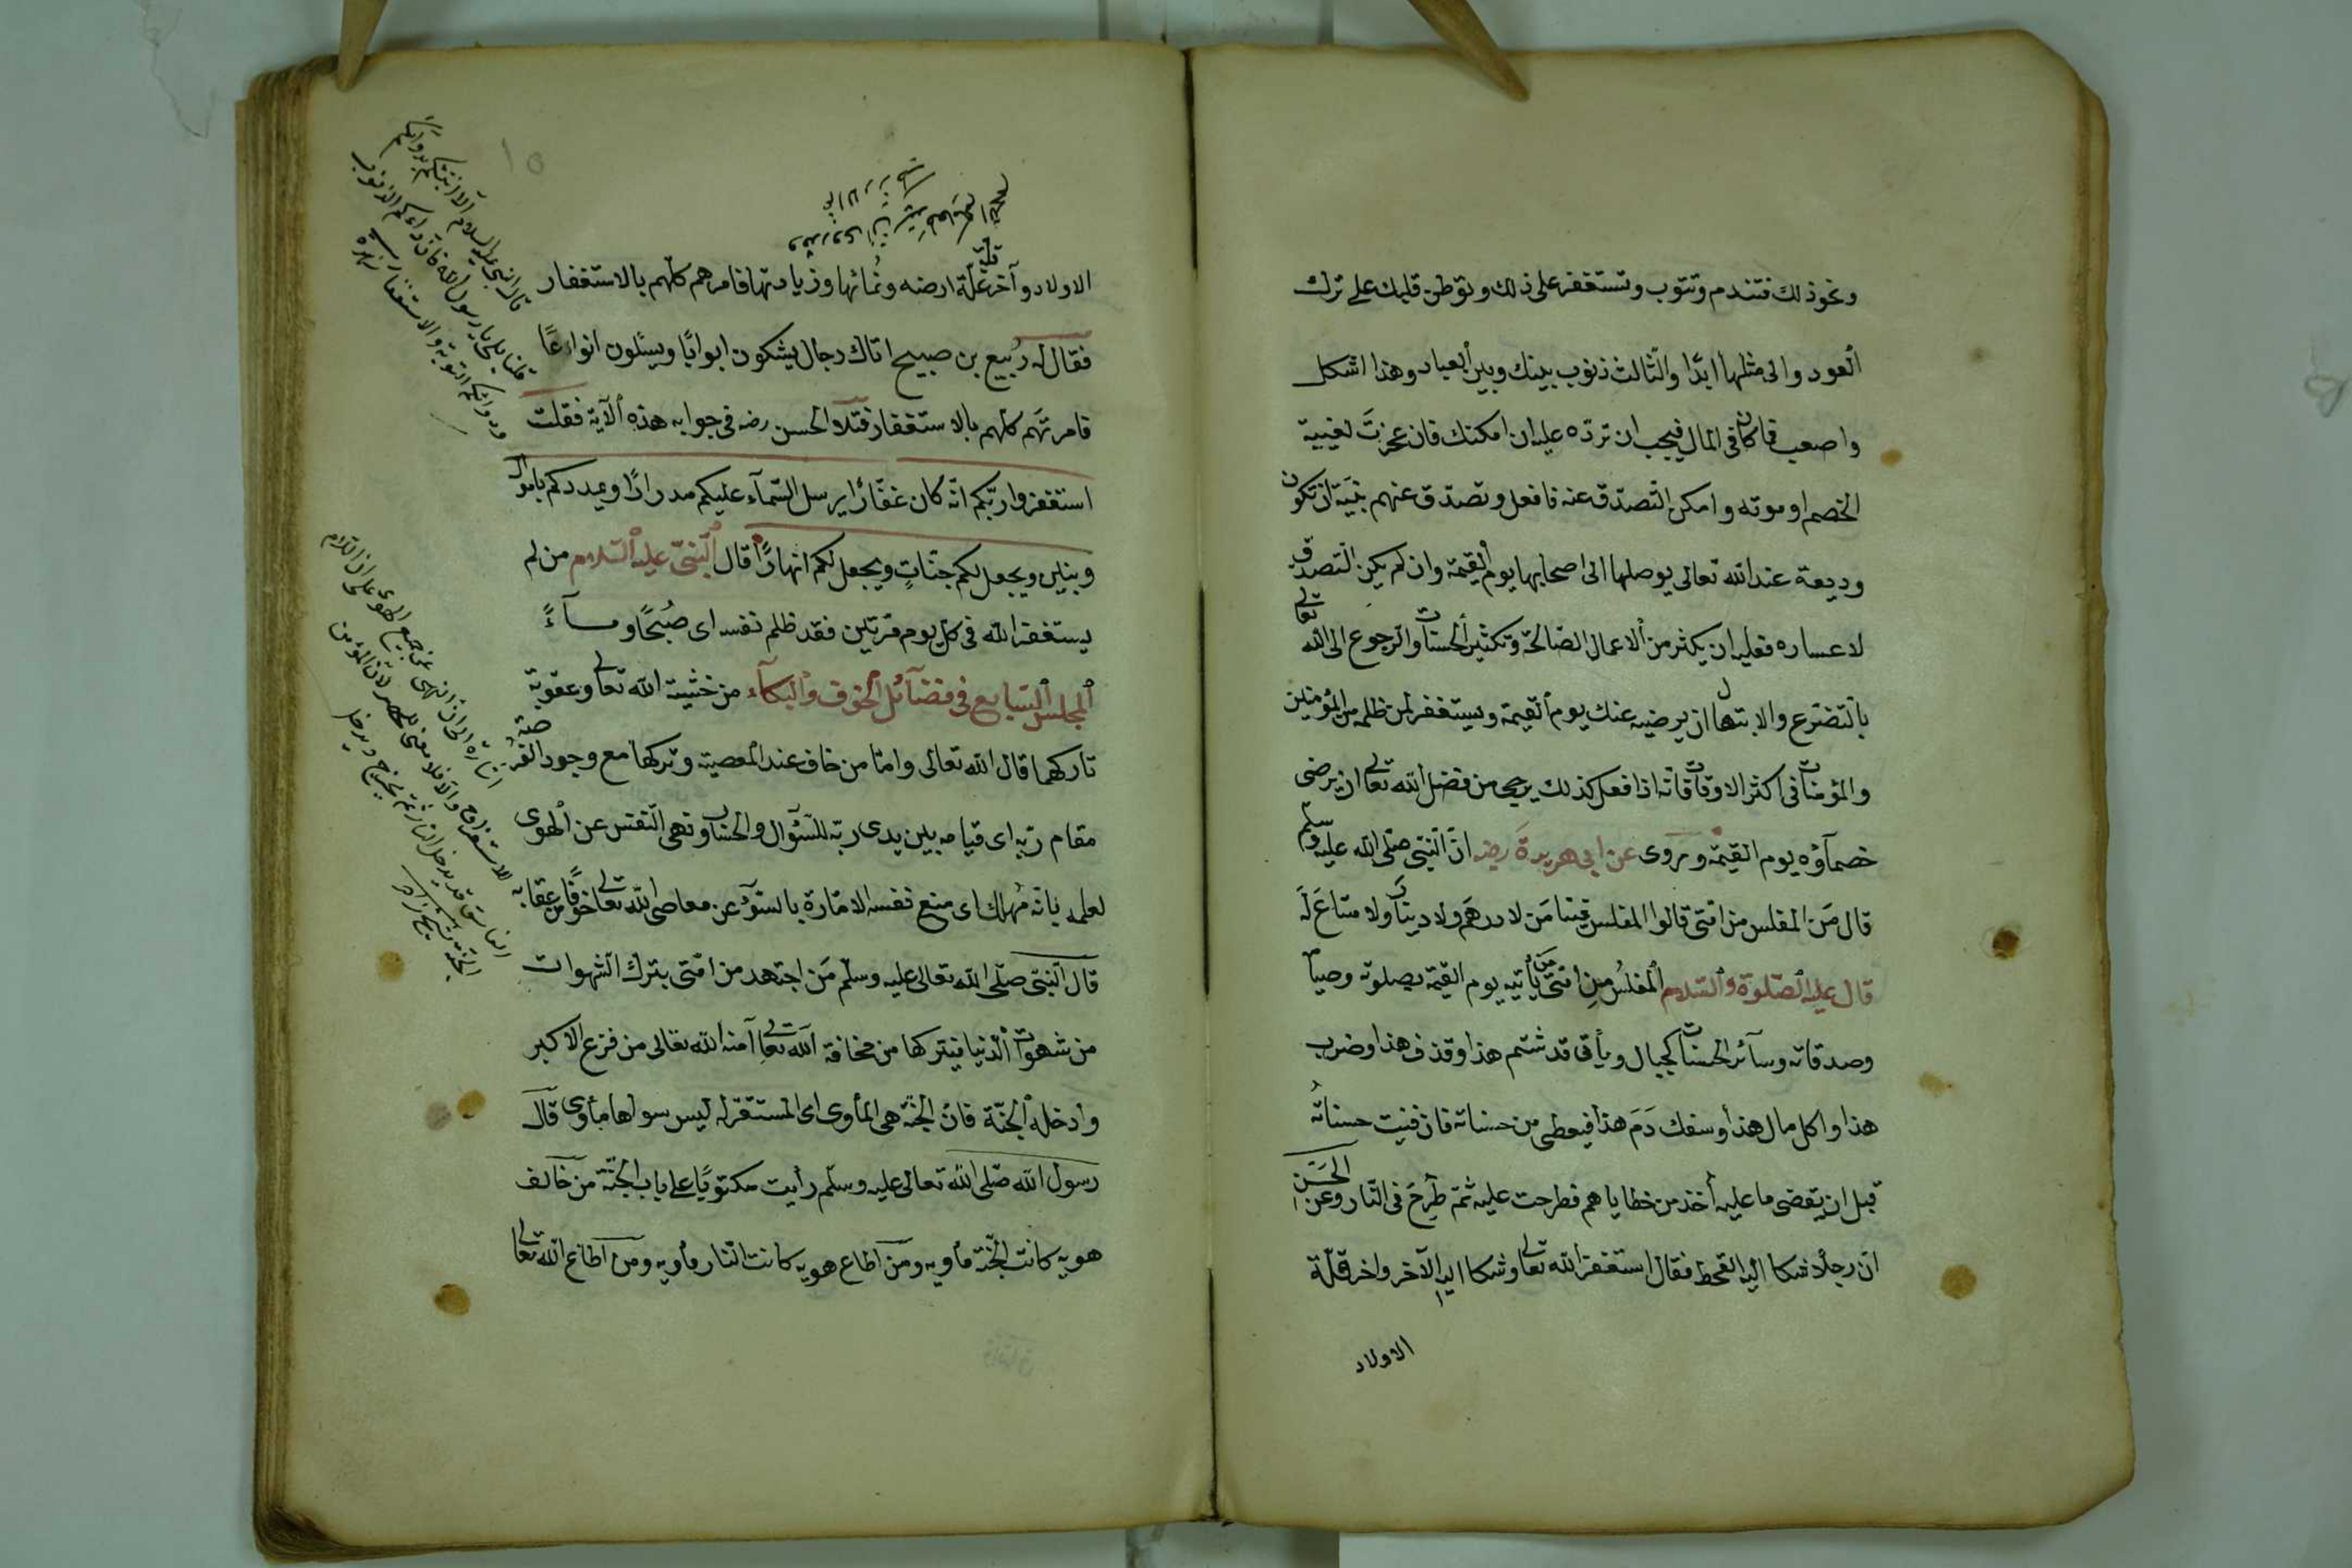 ونحو ذلك فتندم وتتوب وتستغفر على ذلك وتوطن قلبك على ترك
العود والى مثلها ابدًا والثالث ذنوب بينك وبين العباد وهذا اشكل
واصعب فما كان فى المال فيجب ان تردّه عليه ان امكنك فان عجزت لغيبة
الخصم او موته وامكن التصدّق عنه فافعل وتصدّق عنهم بنيّة ان تكون
وديعة عند الله تعالى يوصلها الى اصحابها يوم القيمة وان لم يكن التصدق
لاعساره فعليه ان يكثر من الاعمال الصّالحة وتكثير الحسنات والرجوع الى الله تعالى
بالتضرع والابتهال ان يرضيه عنك يوم القيمة ويستغفر لمن ظلمه من المؤمنين
والمؤمنات فى اكثر الاوقات فانّه اذا فعل كذلك يرجى من فضل الله تعالى ان يرضى
خصمآؤه يوم القيمة وروى عن ابى هريرة رضه انّ النّبى صلّى الله عليه وسلم
قال مَن المفلس من امّتى قالوا المفلس فينا مَن لا درهَم ولا دينارَ ولا متاعَ لَه
قال عليه الصّلوة والسّلام المفلسُ مِن امّتى مَن يأتيه يوم القيمة بصلوته وصيام
وصدقاته وسآئر الحسنات كجبال ويأتى قد شتم هذا وقذف هذا وضرب
هذا واكل مال هذا وسفك دَمَ هذا فيعطى من حسناته فان فنيت حسناتُه
قبل ان يقضى ما عليه أخذ من خطاياهم فطرحت عليه ثمّ طُرِحَ فى النّار وعن الحَسَن
انّ رجلًا شكا اليه القحط فقال استغفر الله تعالى وشكا اليه الآخر واخر قلّة
الاولاد
الاولاد وآخر قلة غلّة ارضه ونُمائها وزيادتها فامرهم كلّهم بالاستغفار
فقال له ربيع بن صبيح اتاك رجال يشكون ابوابًا ويسئلون انواعًا
فامرتَهم كلّهم بالاستغفار فتلا الحسن رضه فى جوابه هذه الآية فقلت
استغفروا ربّكم انّه كان غفّارًا يرسل السّمآء عليكم مدرارًا ويمددكم باموال
وبنين ويجعل لكم جنّاتٍ ويجعل لكم انهارًا قال النّبىّ عليه السّلام من لم
يستغفر الله فى كلّ يوم مرّتين فقد ظلم نفسه اى صُبْحًا ومسآءً
المجلس السّابع فى فضآئل الخوف والبكآء من خشية الله تعالى وعقوبة
تاركهما قال الله تعالى وامّا من خاف عند المعصية وتركها مع وجود القرصة
مقام ربّه اى قيامه بين يدى ربّه للسّؤال والحساب ونهى النّفس عن الهوى
لعلمه بانّه مُهلك اى منع نفسه الامّارة بالسّوء عن معاصى الله تعالى خوفًا من عقابه
قال النّبىّ صلّى الله تعالى عليه وسلّم مَن اجتهد من امّتى بترك الشهوات
من شهوات الدّنيا فيتركها من مخافة الله تعالى آمنه الله تعالى من فزع الاكبر
وادخله الجنّة فانّ الجنّة هى المأوى اى المستقر له ليس سواها مأوى قال
رسول الله صلّى الله تعالى عليه وسلّم رأيت مكتوبًا على باب الجنّة من خالف
هويه كانت الجنّة مأويه ومن اطاع هويه كانت النّار مأويه ومن اطاع الله تعالى
قال النبى عليه السلام الا انبئكم بدوائكم
قلنا بلى يا رسول الله فان داءكم الذنوب
ودوائكم التوبة والاستغفار